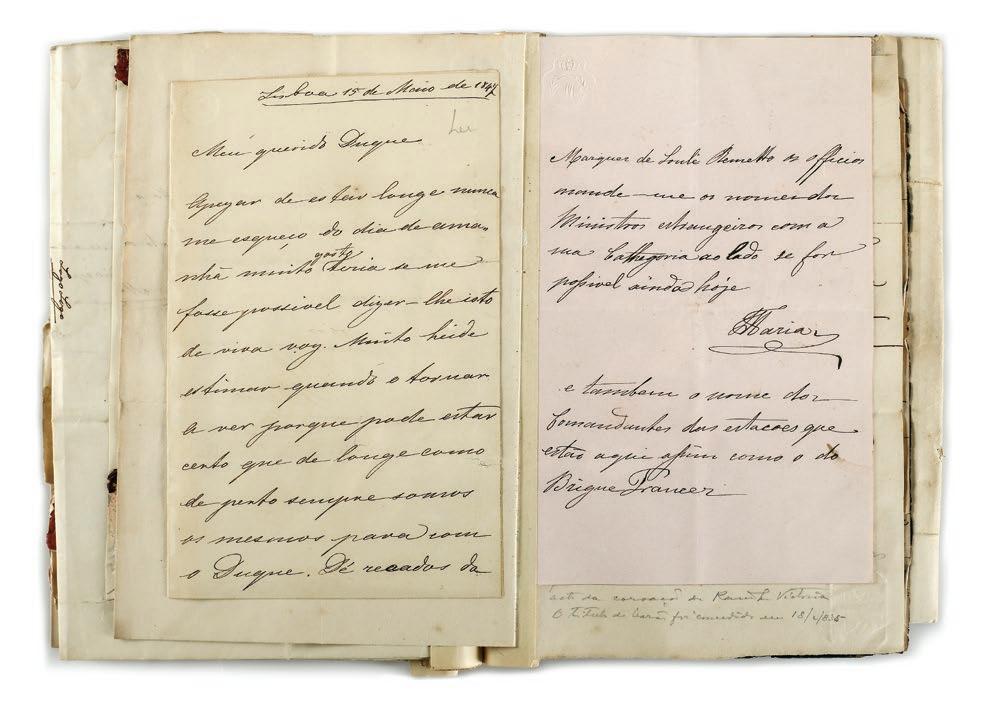 Lisboa 15 de Maio de 1847
Meu querido Duque
Apezar de estar longe nunca
me esqueço do dia de ama-
nhã muito gosto teria se me
fosse possivel dizer-lhe isto
de viva voz. Muito heide
estimar quando o tornar
a ver porque pode estar
certo que de longe como
de perto sempre somos
os mesmos para com
o Duque. Dê recados da
Marquez de Loulé Remetto os officios
mande-me os nomes dos
Ministros estrangeiros com a
sua Cathegoria ao lado se for
possivel ainda hoje
Maria
e tambem o nome dos
Comandantes das estacoes que
estão aqui assim como o do
Brigue Francez
da coroação da Rainha Victoria
O Titulo de Barão foi concedido em